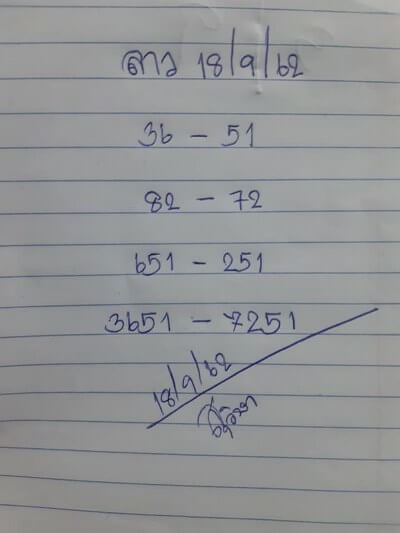 ลาว 18/9/62
36 - 51
82 - 72
651 - 251
3651 - 7251
18/9/62